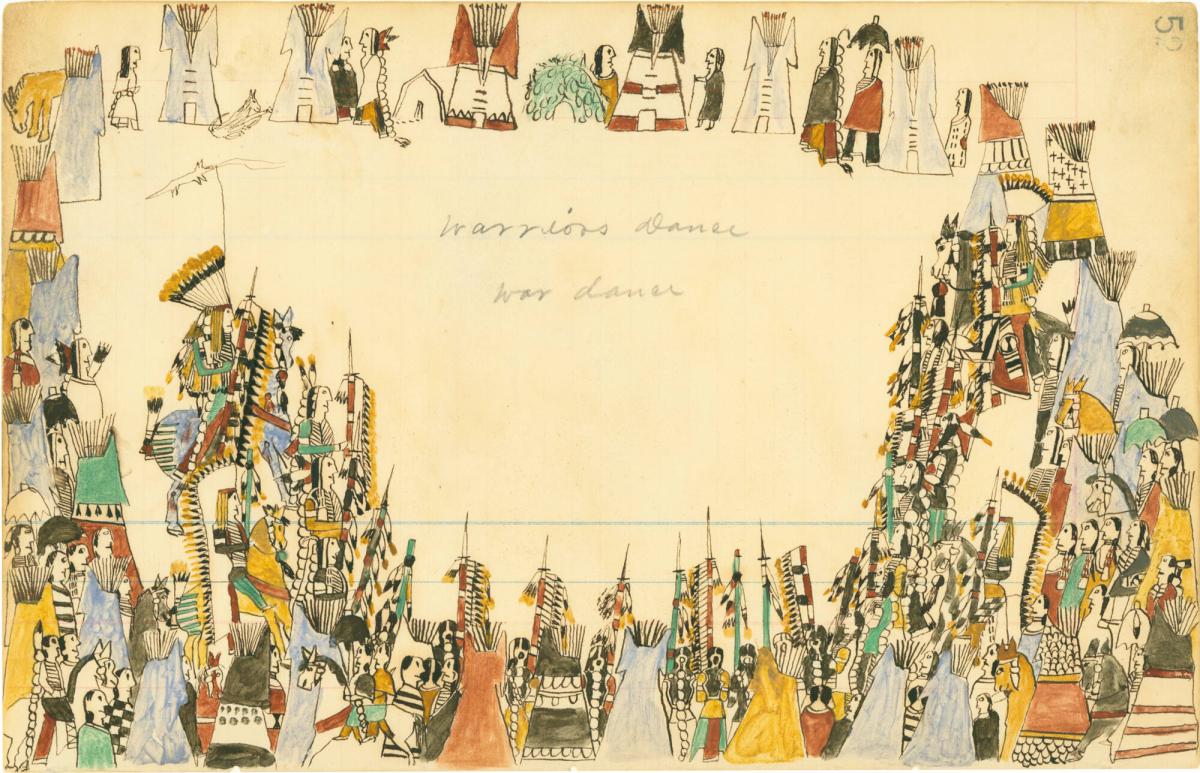 Warriors Dance
War dance